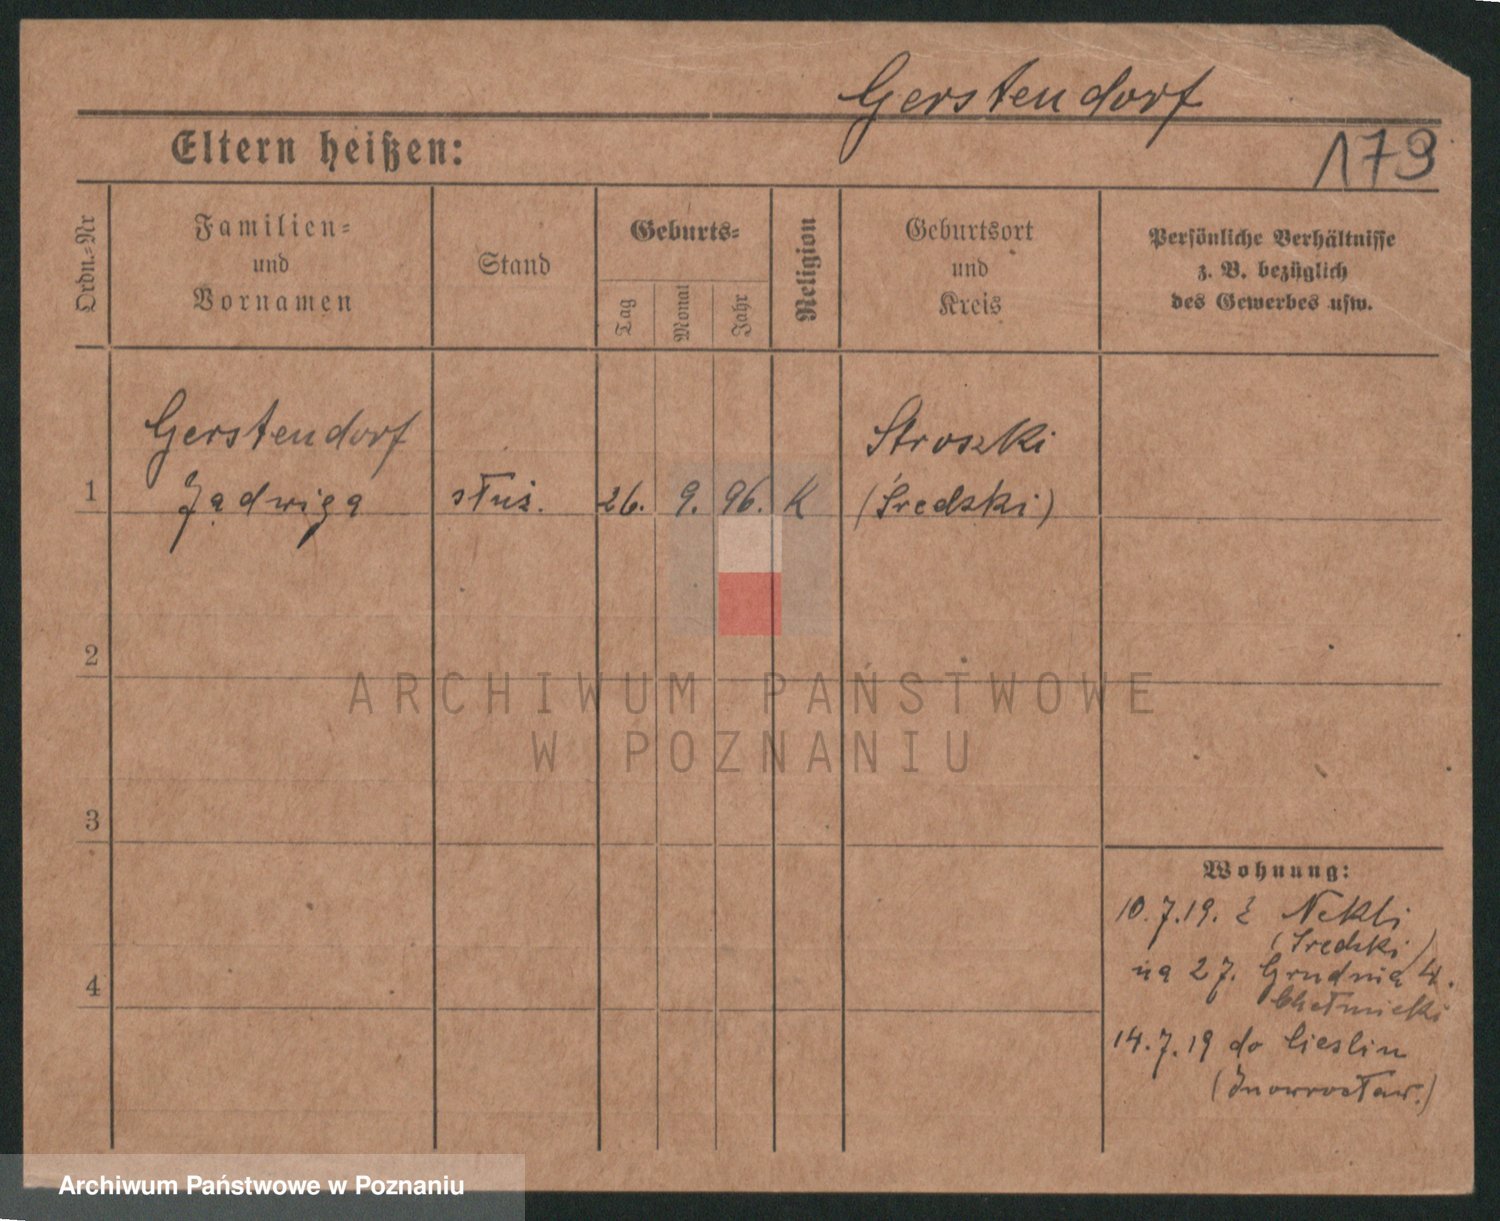 Gerstendorf
179
Eltern heißen:
Ordn.-Nr
Familien-
und
Vornamen
Stand
Geburts-
Tag
Monat
Jahr
Religion
Geburtsort
und
Kreis
Persönliche Verhältnisse
z. B. bezüglich
des Gewerbes usw.
Gerstendorf
Stroszki
1 Jadwiga służ. 26. 9. 96. K (Średzki)
2
ARCHIWUM PAŃSTWOWE
W POZNANIU
3
Wohnung:
10.7.19. z Nekli
(Średzki)
na 27. Grudnia 4.
Chełmicki
4
14.7.19 do Cieslin
(Inowrocław.)
Archiwum Państwowe w Poznaniu